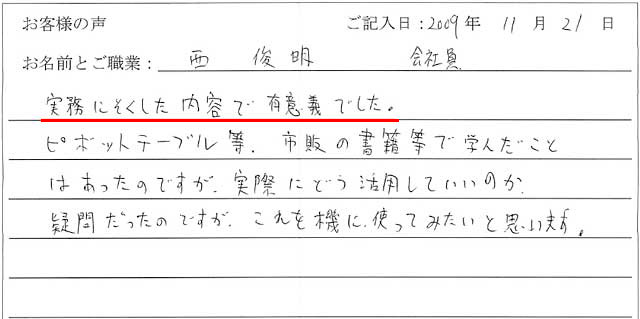 お客様の声 ご記入日:2009年 11月 21日
お名前とご職業: 西 俊明 会社員
実務にそくした内容で有意義でした。
ピボットテーブル等、市販の書籍等で学んだこと
はあったのですが、実際にどう活用していいのか、
疑問だったのですが、これを機に、使ってみたいと思います。